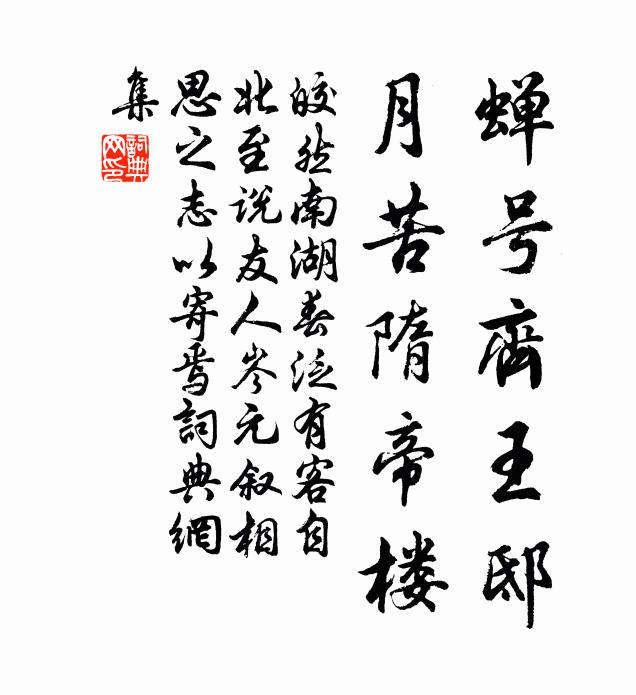 蝉号齊王邸
月苦隋帝楼
皎然南湖春泛有客自
北至说友人岑元叙相
思之志以寄焉詞典網
集
詞典
网印